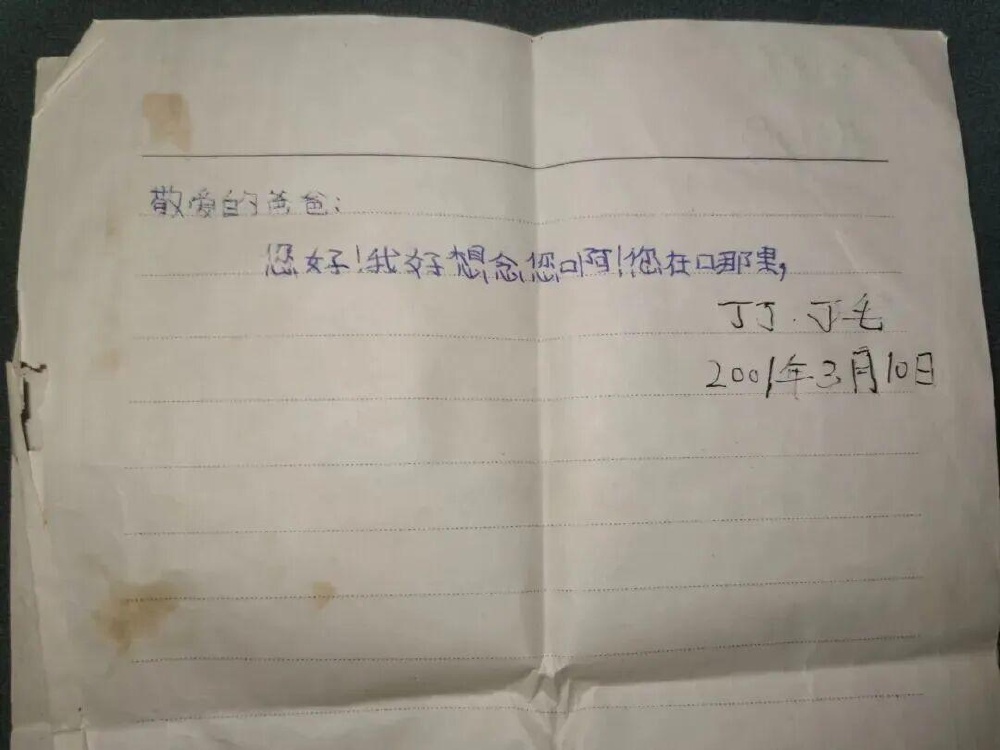 敬爱的爸爸:
您好!我好想念您啊!您在哪里,
丁丁.丁毛
2001年3月10日